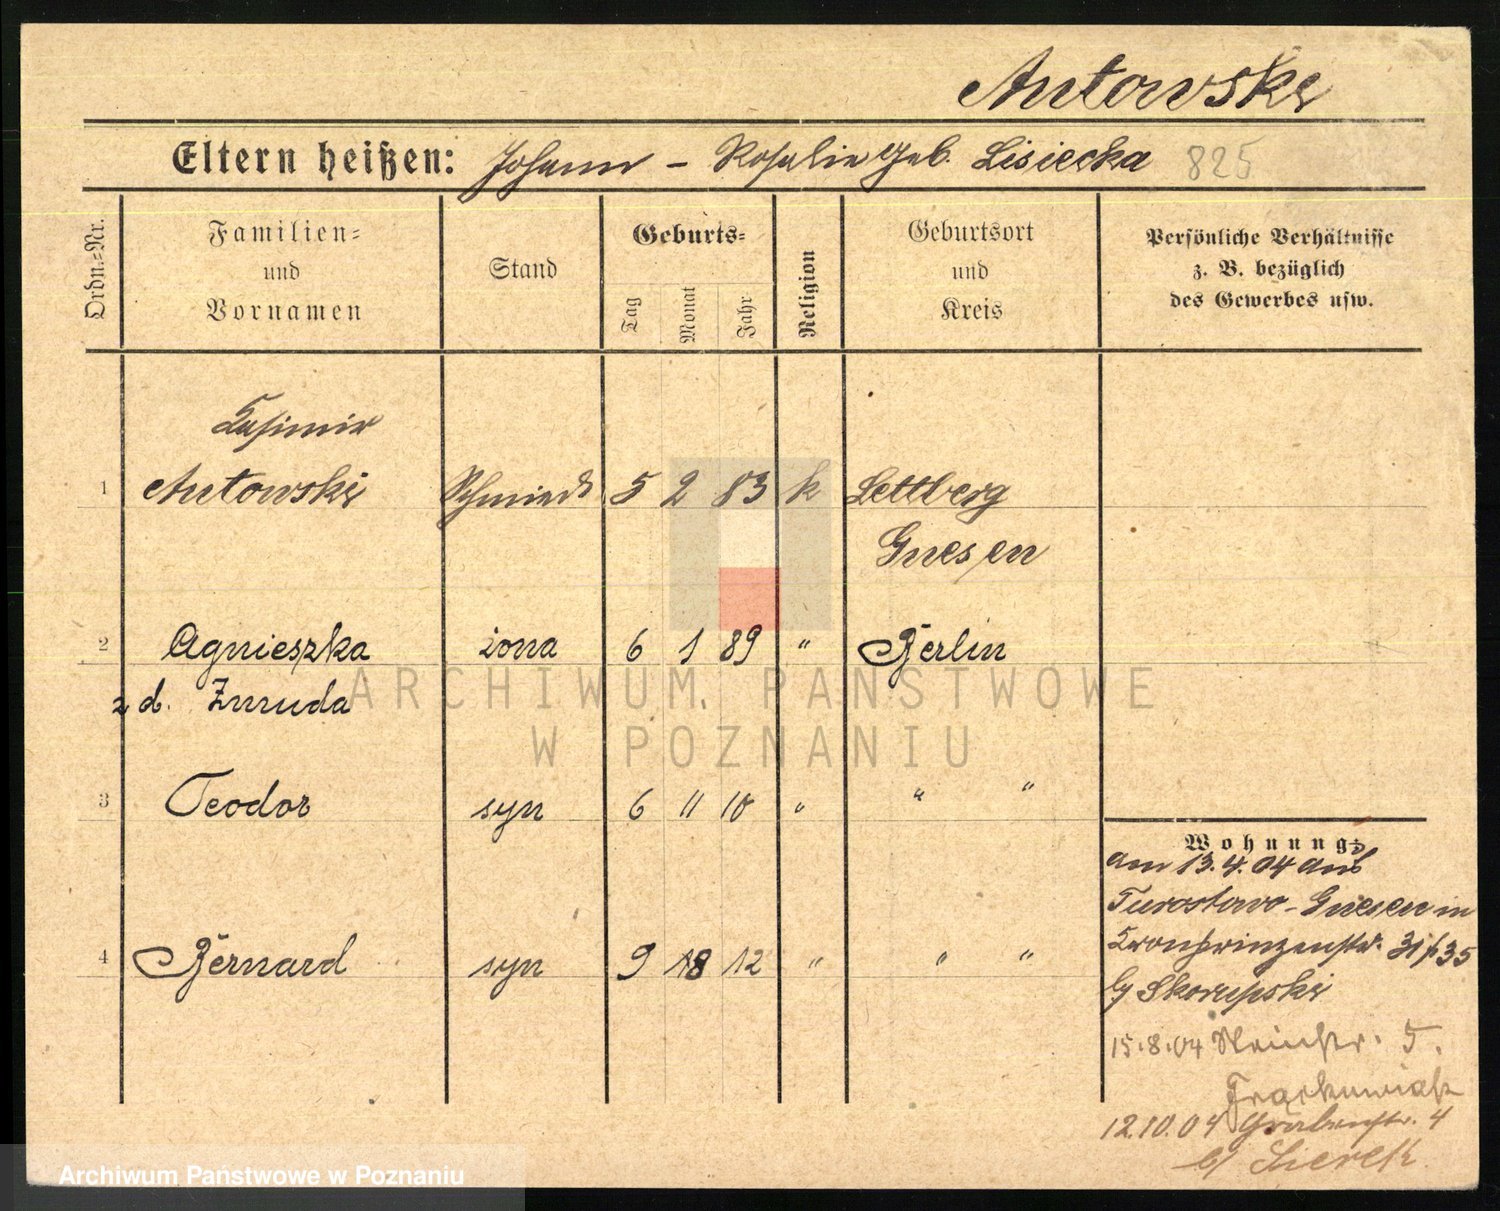 Antowski
Eltern heißen: Johann – Rosalie geb. Lisiecka 825
Ordn.=Nr.
Familien=
und
Vornamen
Stand
Geburts=
Tag Monat Jahr
Religion
Geburtsort
und
Kreis
Persönliche Verhältnisse
z. B. bezüglich
des Gewerbes usw.
Kasimir
1 Antowski Schmied 5 2 83 k Lettberg
Gnesen
2 Agnieszka żona 6 1 89 " Berlin
z d. Żmuda
3 Teodor syn 6 11 10 " " "
4 Bernard syn 9 18 12 " " "
Wohnung:
am 13.4.04 aus
Turostowo - Gnesen in
Kronprinzenstr. 31/35
b/ Skorupski
15.8.04 5.
12.10.04 Grabenstr. 4
b/ Sierek
ARCHIWUM PAŃSTWOWE
W POZNANIU
Archiwum Państwowe w Poznaniu